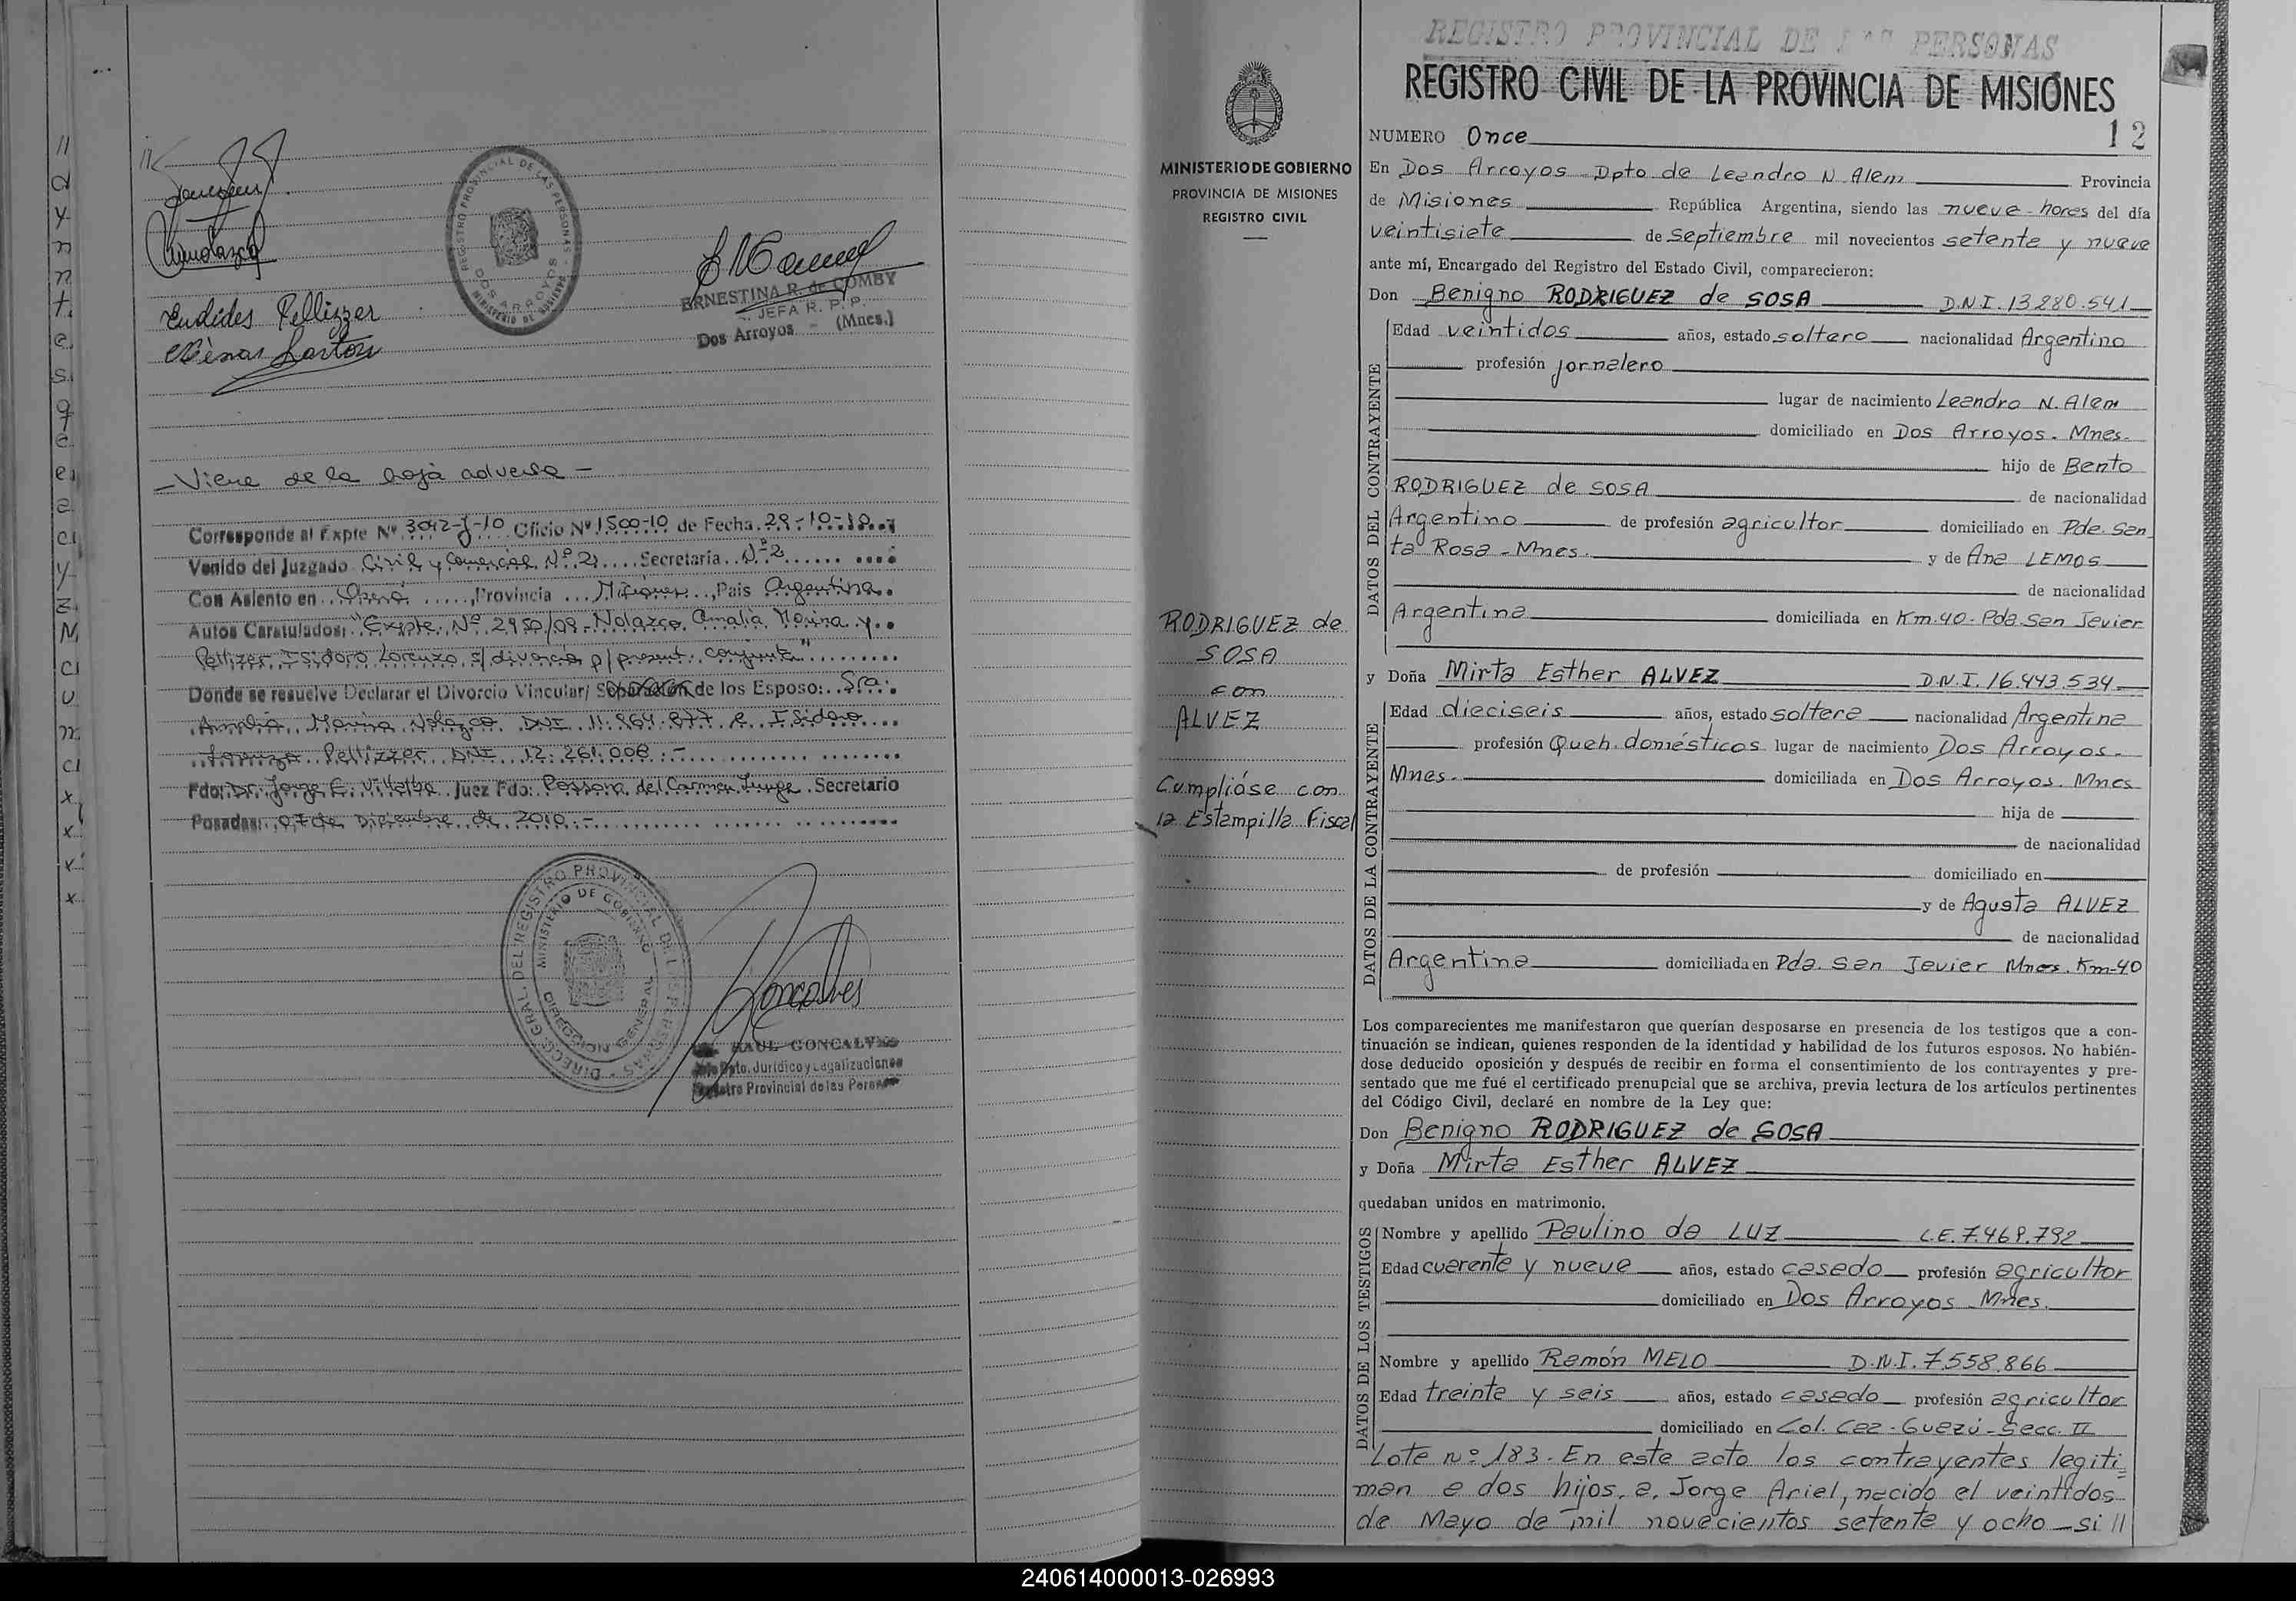 Euclides Pellizzer
REGISTRO PROVINCIAL DE LAS PERSONAS
DOS ARROYOS
MINISTERIO DE GOBIERNO
ERNESTINA R. de COMBY
JEFA R. P. P.
Dos Arroyos - (Mnes.)
- Viene de la hoja adversa -
Corresponde al Expte Nº 3042-J-10 Oficio Nº 1500-10 de Fecha 29-10-10
Venido del Juzgado Civil y Comercial Nº 2 Secretaría Nº 2
Con Asiento en Oberá, Provincia Misiones, Pais Argentina.
Autos Caratulados: "Expte. Nº 2950/08 Nolazco, Amalia Marina y
Pellizer, Isidoro Lorenzo s/ divorcio p/ present. conjunta"
Donde se resuelve Declarar el Divorcio Vincular/ Separación de los Esposo: Sra:
Amalia Marina Nolazco DNI 11.864.877 e Isidoro
Lorenzo Pellizzer DNI 12.261.008.-
Fdo: Dr. Jorge E. Villalba Juez Fdo: del Carmen Secretario
Posadas: 07 de Diciembre de 2010.-
DIRECC. GRAL. DEL REGISTRO PROVINCIAL DE LAS PERSONAS
MINISTERIO DE GOBIERNO
DIRECCION GENERAL
Goncalves
RAUL GONCALVES
Dpto. Jurídico y Legalizaciones
Registro Provincial de las Personas
MINISTERIO DE GOBIERNO
PROVINCIA DE MISIONES
REGISTRO CIVIL
RODRIGUEZ de
SOSA
con
ALVEZ
Cumplióse con
la Estampilla Fiscal
REGISTRO PROVINCIAL DE LAS PERSONAS
REGISTRO CIVIL DE LA PROVINCIA DE MISIONES
NUMERO Once
12
En Dos Arroyos Dpto de Leandro N. Alem Provincia
de Misiones República Argentina, siendo las nueve horas del día
veintisiete de septiembre mil novecientos setenta y nueve
ante mí, Encargado del Registro del Estado Civil, comparecieron:
Don Benigno RODRIGUEZ de SOSA D.N.I. 13.280.541
DATOS DEL CONTRAYENTE
Edad veintidos años, estado soltero nacionalidad Argentino
profesión jornalero
lugar de nacimiento Leandro N. Alem
domiciliado en Dos Arroyos. Mnes.
hijo de Bento
RODRIGUEZ de SOSA de nacionalidad
Argentino de profesión agricultor domiciliado en Pda. San
ta Rosa - Mnes. y de Ana LEMOS
de nacionalidad
Argentina domiciliada en Km. 40 - Pda San Javier
y Doña Mirta Esther ALVEZ D.N.I. 16.443.534
DATOS DE LA CONTRAYENTE
Edad dieciseis años, estado soltera nacionalidad Argentina
profesión Queh. domésticos lugar de nacimiento Dos Arroyos.
Mnes. domiciliada en Dos Arroyos. Mnes
hija de
de nacionalidad
de profesión domiciliado en
y de Agusta ALVEZ
de nacionalidad
Argentina domiciliada en Pda. San Javier Mnes. Km-40
Los comparecientes me manifestaron que querían desposarse en presencia de los testigos que a con-
tinuación se indican, quienes responden de la identidad y habilidad de los futuros esposos. No habién-
dose deducido oposición y después de recibir en forma el consentimiento de los contrayentes y pre-
sentado que me fué el certificado prenupcial que se archiva, previa lectura de los artículos pertinentes
del Código Civil, declaré en nombre de la Ley que:
Don Benigno RODRIGUEZ de SOSA
y Doña Mirta Esther ALVEZ
quedaban unidos en matrimonio.
DATOS DE LOS TESTIGOS
Nombre y apellido Paulino da LUZ L.E. 7.469.792
Edad cuarenta y nueve años, estado casado profesión agricultor
domiciliado en Dos Arroyos Mnes.
Nombre y apellido Ramón MELO D.N.I. 7.558.866
Edad treinta y seis años, estado casado profesión agricultor
domiciliado en Col. Caa-Guazú - Secc. II
Lote nº 183. En este acto los contrayentes legiti=
man a dos hijos, a, Jorge Ariel, nacido el veintidos
de Mayo de mil novecientos setenta y ocho - si //
240614000013-026993